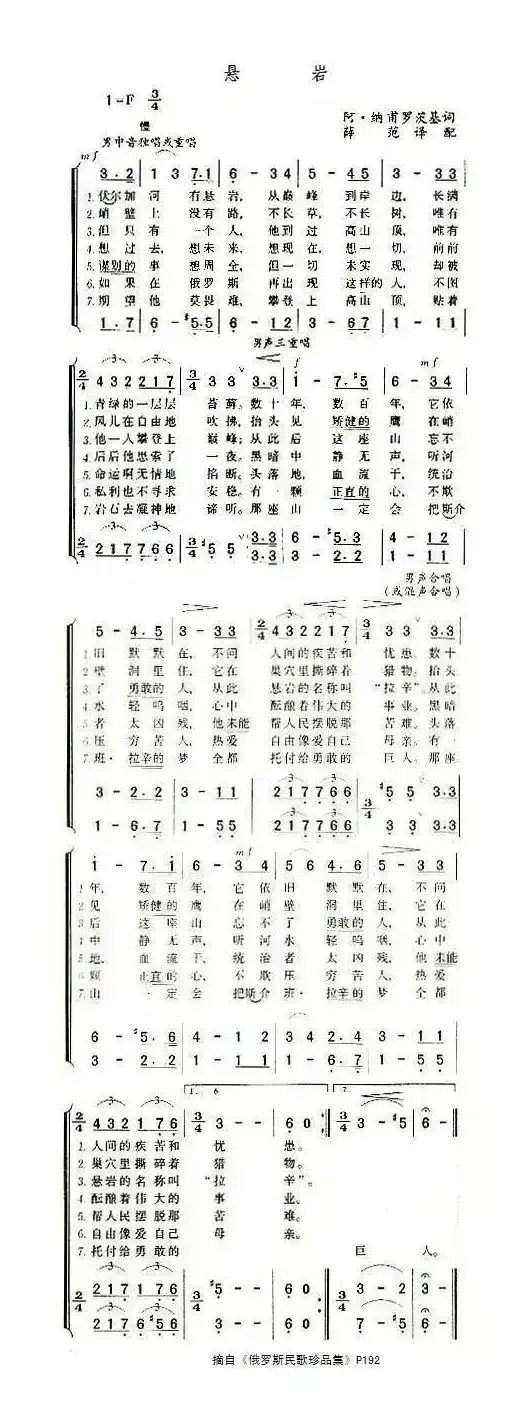 悬 岩
1=F 3/4
慢
阿·纳甫罗茨基词
薛 范 译 配
男中音独唱或重唱
mf
3·2 | 1 3 7·1 | 6 - 3 4 | 5 - 4 5 | 5 - 3 3
1. 伏尔加河 有悬岩，从巅峰 到岸边，长满
2. 峭壁上 没有路，不长草，不长树，唯有
3. 但只有 一个人，他到过 高山顶，唯有
4. 想过去，想未来，想现在，想一切，前前
5. 谋划的事 想周全，但一切 未实现，却被
6. 如果在 俄罗斯 再出现 这样的人，不图
7. 期望他 莫畏难，攀登上 高山顶，贴着
1·7 | 6 - #5·5 | 6 - 1 2 | 3 - 6 7 | 1 - 1 2
男声三重唱
f
mf
2/4 4 3 2 2 1 7 | 3/4 3 3 3·3 | i - 7·#5 | 6 - 3 4
1. 青绿的一层层 苔藓。数十年，数百年，它依
2. 风儿在自由地 吹拂，抬头见 矫健的鹰在峭
3. 他一人攀登上 巅峰；从此后 这座山忘不
4. 后后他思索了 一夜。黑暗中 静无声，听河
5. 命运啊无情地 掐断。头落地，血流干，统治
6. 私利也不寻求 安稳。有一颗 正直的心，不欺
7. 岩石去凝神地 谛听。那座山 一定会把斯介
2/4 2 1 7 7 6 6 | 3/4 #5 5 3·3 | 6 - #5·3 | 4 - 1 2
3·3 | 3 - 2·2 | 1 - 1 1
男声合唱
(或混声合唱)
5 - 4·5 | 3 - 3 3 | 2/4 4 3 2 2 1 7 | 3/4 3 3 3·3
1. 旧 默默在，不问 人间的疾苦和 忧患。数十
2. 壁 洞里住，它在 巢穴里撕碎着 猎物。抬头
3. 了 勇敢的人，从此 悬岩的名称叫 “拉辛”。从此
4. 水 轻呜咽，心中 酝酿着伟大的 事业。黑暗
5. 者 太凶残，他未能 帮人民摆脱那 苦难。头落
6. 压 穷苦人，热爱 自由像爱自己 母亲。有一
7. 班·拉辛的梦 全都 托付给勇敢的 巨人。那座
3 - 2·2 | 3 - 1 1 | 2 1 7 7 6 6 | 3/4 #5 5 3·3
1 - 6·7 | 1 - 5 5 | 2 1 7 7 6 6 | 3 3 3·3
mf
i - 7·i | 6 - 3 4 | 5 6 4·3 | 5 - 3 3
1. 年，数百年，它依旧 默默在，不问
2. 见 矫健的鹰在峭壁 洞里住，它在
3. 后 这座山忘不了 勇敢的人，从此
4. 中 静无声，听河水 轻呜咽，心中
5. 地，血流干，统治者 太凶残，他未能
6. 颗 正直的心，不欺压 穷苦人，热爱
7. 山 一定会把斯介班·拉辛的梦 全都
6 - #5·6 | 4 - 1 2 | 3 4 2·4 | 3 - 1 1
3 - 2·2 | 1 - 1 1 | 1 - 6·7 | 1 - 5 5
1. 6
7.
2/4 4 3 2 1 7 6 | 3/4 3 - - | 6 0 :| 3/4 3 - #5 | 6 - ‖
1. 人间的疾苦和 忧 患。
2. 巢穴里撕碎着 猎 物。
3. 悬岩的名称叫 “拉 辛”。
4. 酝酿着伟大的 事 业。
5. 帮人民摆脱那 苦 难。
6. 自由像爱自己 母 亲。
7. 托付给勇敢的 巨 人。
2/4 2 1 7 1 7 6 | 3/4 #5 - - | 6 0 :| 3/4 3 - 2 | 3 - ‖
2 1 7 1 7 6 | 3 - - | 6 0 :| 7 - #5 | 6 - ‖
摘自《俄罗斯民歌珍品集》P192